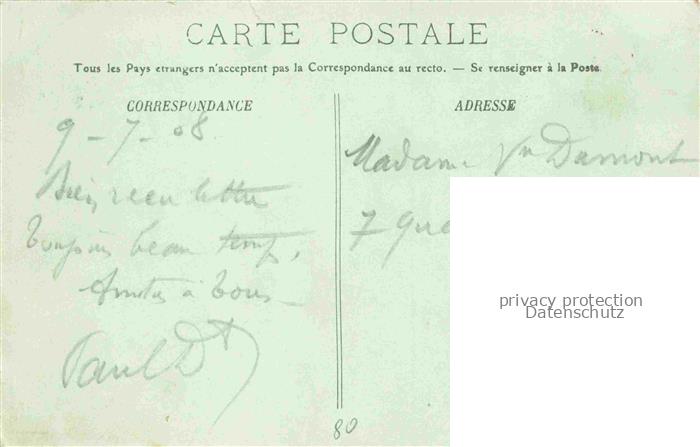 CARTE POSTALE
Tous les Pays étrangers n'acceptent pas la Correspondance au recto. — Se renseigner à la Poste.
CORRESPONDANCE
ADRESSE
9-7-08
Bien reçu lettre
Toujours beau temps,
Amitiés à tous
Paul Dt
Madame Vve Dumont
7 Que
privacy protection
Datenschutz
80